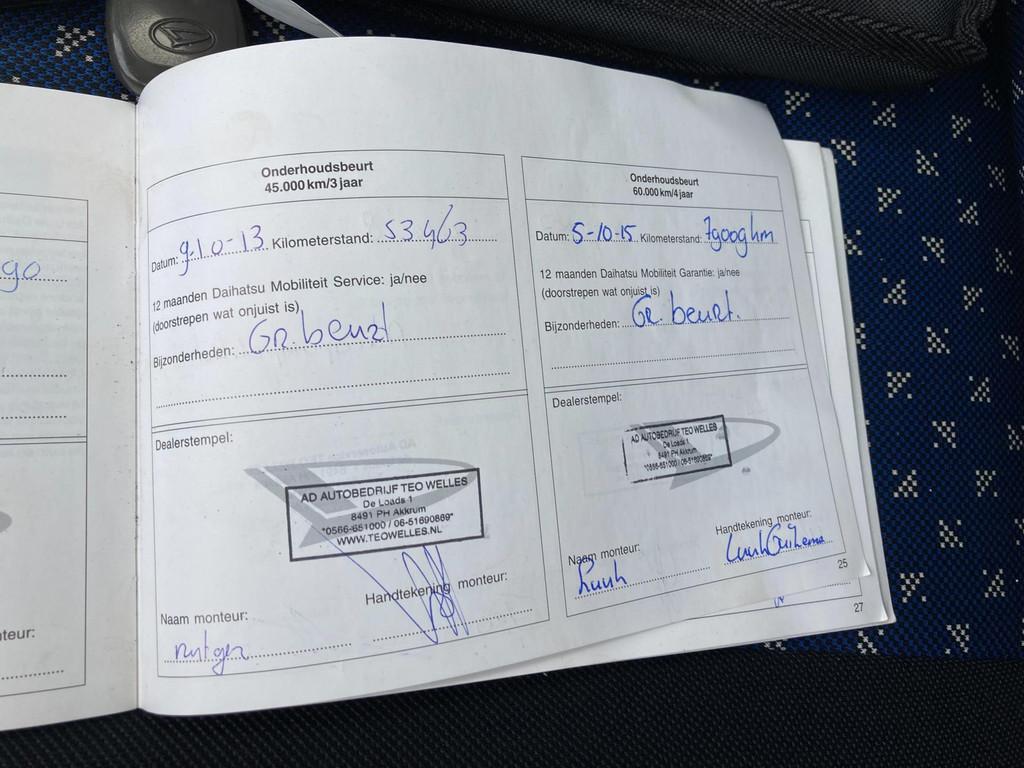 go
teur:
Onderhoudsbeurt
45.000 km/3 jaar
Datum: 9-10-13 Kilometerstand: 53463
12 maanden Daihatsu Mobiliteit Service: ja/nee
(doorstrepen wat onjuist is)
Bijzonderheden: Gr. beurt
Dealerstempel:
AD AUTOBEDRIJF TEO WELLES
De Loads 1
8491 PH Akkrum
*0566-651000 / 06-51690869*
WWW.TEOWELLES.NL
Handtekening monteur:
Naam monteur:
rutger
Onderhoudsbeurt
60.000 km/4 jaar
Datum: 5-10-15 Kilometerstand: 79009km
12 maanden Daihatsu Mobiliteit Garantie: ja/nee
(doorstrepen wat onjuist is)
Bijzonderheden: Gr. beurt.
Dealerstempel:
AD AUTOBEDRIJF TEO WELLES
De Loads 1
8491 PH Akkrum
*0566-651000 / 06-51690869*
Handtekening monteur:
Naam monteur:
25
27